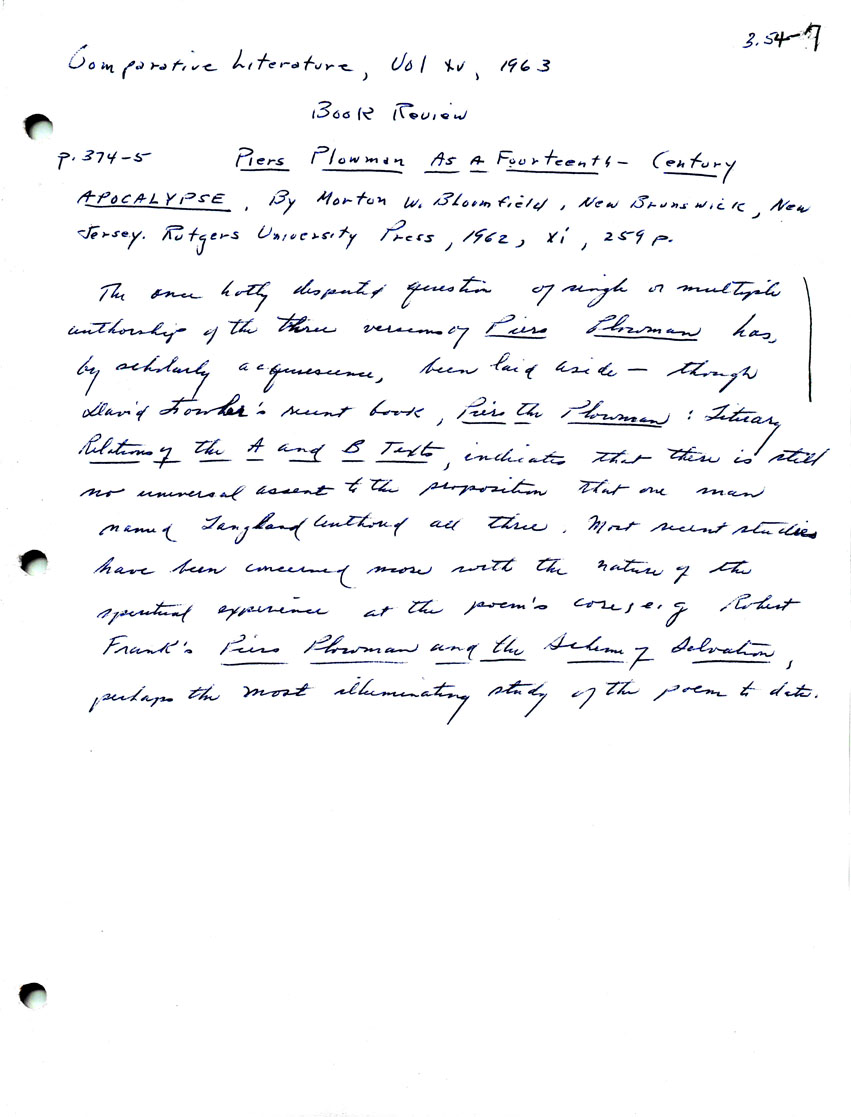 3.54-7
Comparative Literature, Vol XV, 1963
Book Review
p. 374-5 Piers Plowman As A Fourteenth-Century
APOCALYPSE, By Morton W. Bloomfield, New Brunswick, New
Jersey. Rutgers University Press, 1962, xi, 259 p.
The once hotly disputed question of single or multiple
authorship of the three versions of Piers Plowman has,
by scholarly acquiescence, been laid aside — though
David Fowler's recent book, Piers the Plowman: Literary
Relations of the A and B Texts, indicates that there is still
no universal assent to the proposition that one man
named Langland authored all three. Most recent studies
have been concerned more with the nature of the
spiritual experience at the poem's core, e.g. Robert
Frank's Piers Plowman and the Scheme of Salvation,
perhaps the most illuminating study of the poem to date.